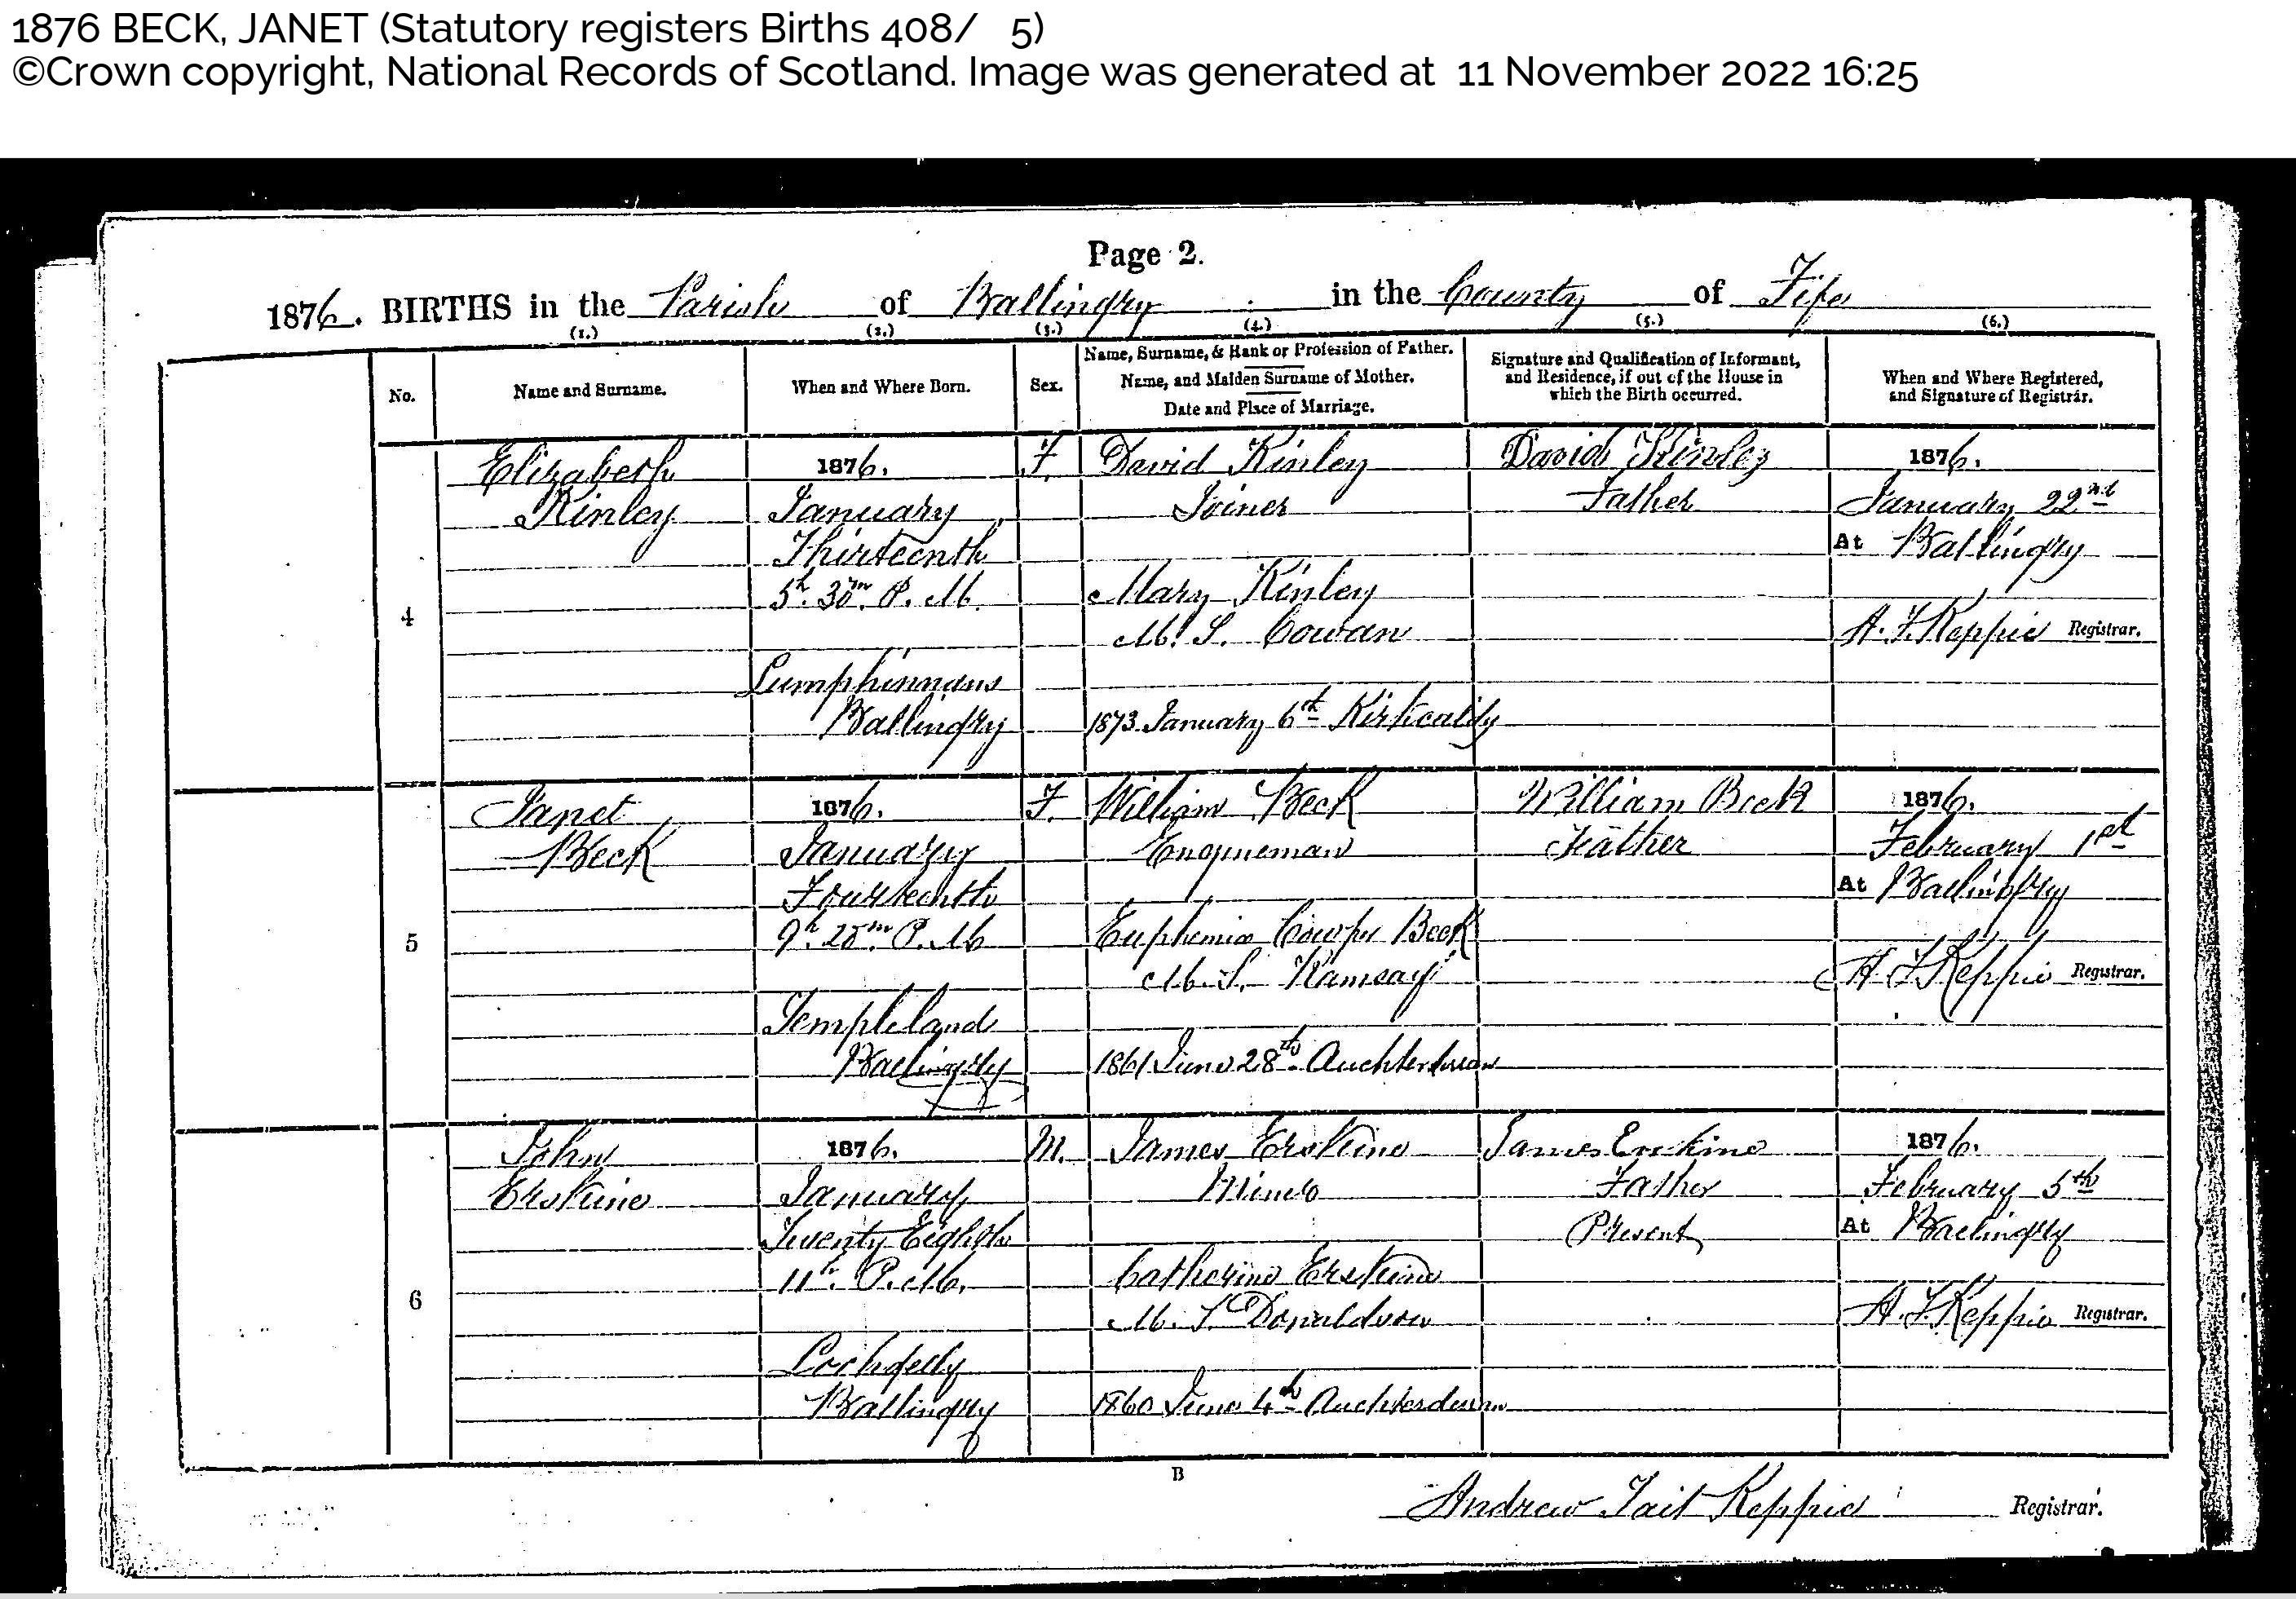 1876 BECK, JANET (Statutory registers Births 408/ 5)
©Crown copyright, National Records of Scotland. Image was generated at 11 November 2022 16:25
Page 2.
1876. BIRTHS in the Parish of Ballingry in the County of Fife
(1.) (2.) (3.) (4.) (5.) (6.)
No.
Name and Surname.
When and Where Born.
Sex.
Name, Surname, & Rank or Profession of Father.
Name, and Maiden Surname of Mother.
Date and Place of Marriage.
Signature and Qualification of Informant,
and Residence, if out of the House in
which the Birth occurred.
When and Where Registered,
and Signature of Registrar.
4
Elizabeth
Kinley
1876.
January
Thirteenth
5h. 30m. P.M.
Lumphinnans
Ballingry
F.
David Kinley
Joiner
Mary Kinley
M.S. Cowan
1873 January 6th Kirkcaldy
David Kinley
Father
1876.
January 22nd
At Ballingry
A. T. Keppie Registrar.
5
Janet
Beck
1876.
January
Fourteenth
9h. 20m. P.M
Templeland
Ballingry
F.
William Beck
Engineman
Euphemia Cowper Beck
M.S. Ramsay
1861 June 28th Auchterderran
William Beck
Father
1876.
February 1st
At Ballingry
A T Keppie Registrar.
6
John
Erskine
1876.
January
Twenty Eighth
11h. P.M.
Lochgelly
Ballingry
M.
James Erskine
Miner
Catherine Erskine
M.S. Donaldson
1860 June 4th Auchterderran
James Erskine
Father
Present
1876.
February 5th
At Ballingry
A. T. Keppie Registrar.
B
Andrew Tait Keppie Registrar.